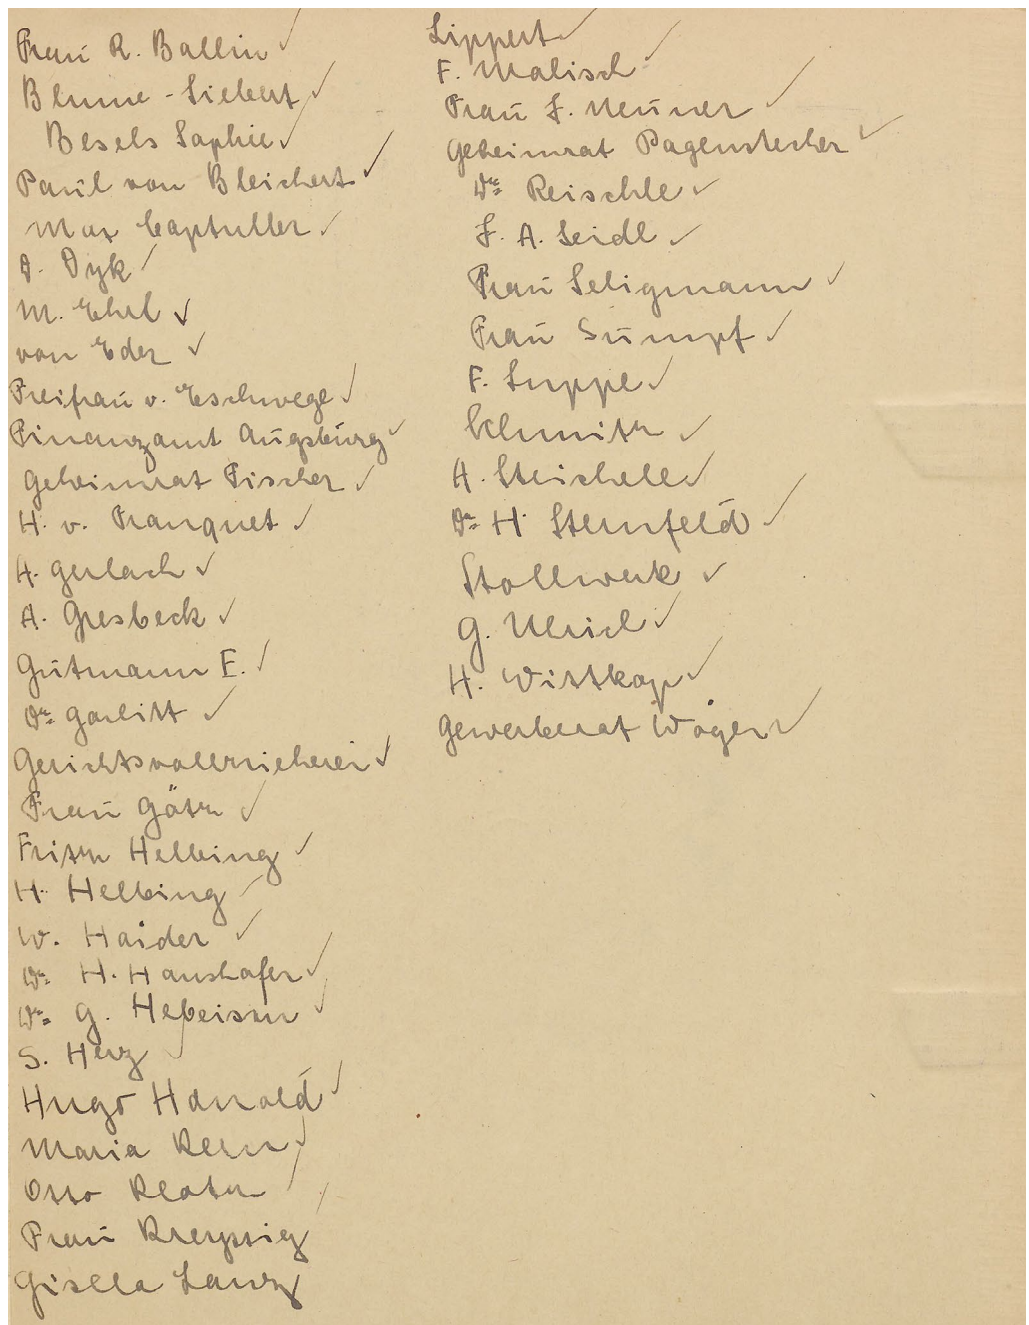 Frau R. Ballin
Blume-Siebert
Besels Sophie
Paul von Bleichert
Max Captuller
D. Dyk
M. Ehrl
von Eder
Freifrau v. Eschwege
Finanzamt Augsburg
Geheimrat Fischer
H. v. Franquet
H. Gerlach
A. Gresbeck
Gutmann E.
Dr. Garlitt
Gerichtsvollzieherei
Frau Götz
Fritz Helbing
H. Helbing
W. Haider
Dr. H. Haushofer
Dr. G. Hebeisen
S. Herz
Hugo Harrold
Maria Kern
Otto Klotz
Frau Kreyssig
Gisella Lanz
Lippert
F. Malisch
Frau L. Neuner
Geheimrat Pagenstecher
Dr. Reischle
F. A. Seidl
Frau Seligmann
Frau Sumpf
F. Suppe
Schmitz
A. Steichele
Dr. H. Steinfeld
Stollwerk
G. Ulrich
H. Wittkop
Gewerberat Woger